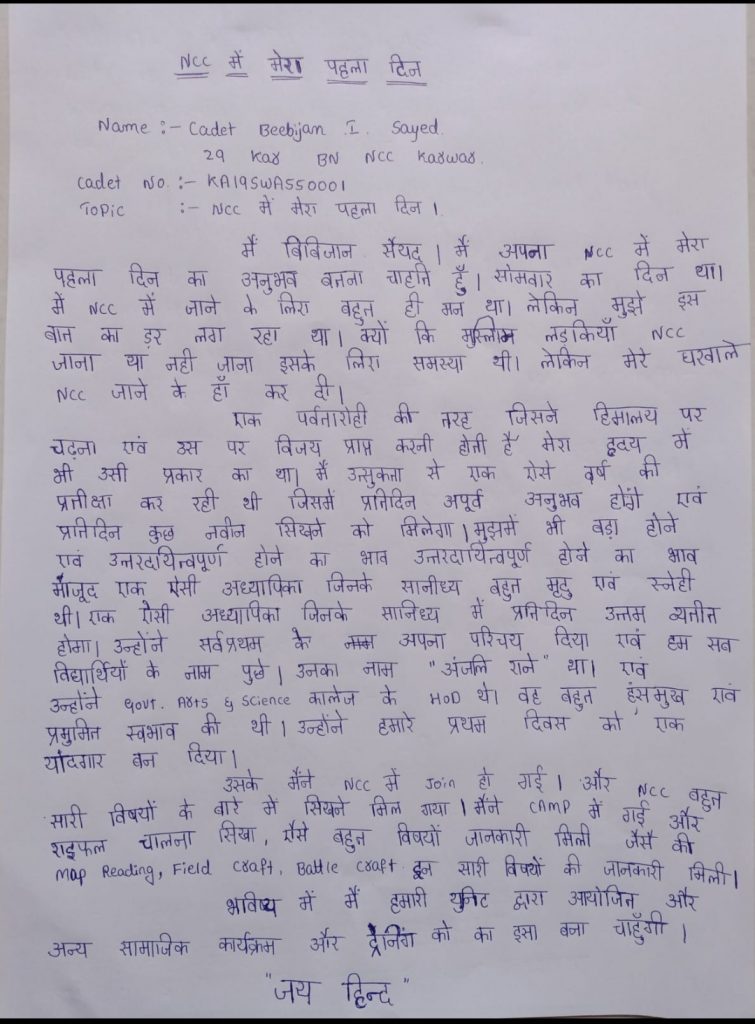 NCC में मेरा पहला दिन
Name :- Cadet Beebijan I. Sayed.
29 Kar BN NCC Karwar.
Cadet No. :- KA19SWA550001
Topic :- NCC में मेरा पहला दिन ।
मैं बिबिजान सैयद | मैं अपना NCC में मेरा
पहला दिन का अनुभव बतना चाहति हूँ | सोमवार का दिन था।
में NCC में जाने के लिए बहुत ही मन था। लेकिन मुझे इस
बात का ड़र लग रहा था | क्यों कि मुस्लिम लड़कियाँ NCC
जाना या नही जाना इसके लिए समस्या थी। लेकिन मेरे घरवाले
NCC जाने के हाँ कर दी |
एक पर्वतारोही की तरह जिसने हिमालय पर
चढ़ना एवं उस पर विजय प्राप्त करनी होती है मेरा हृदय में
भी उसी प्रकार का था| मैं उत्सुकता से एक ऐसे वर्ष की
प्रतीक्षा कर रही थी जिसमें प्रतिदिन अपूर्व अनुभव होंगे एवं
प्रतिदिन कुछ नवीन सिखने को मिलेगा | मुझमें भी बडा होने
एवं उत्तरदायित्वपूर्ण होने का भाव उत्तरदायित्वपूर्ण होने का भाव
मौजूद एक ऐसी अध्यापिका जिनके सानीध्य बहुत मृदु एवं स्नेही
थी। एक ऐसी अध्यापिका जिनके सानिध्य में प्रतिदिन उत्तम व्यतीत
होगा| उन्होंने सर्वप्रथम के अपना परिचय दिया एवं हम सब
विद्यार्थियों के नाम पुछे | उनका नाम "अंजलि राने" था। एवं
उन्होंने Govt. Arts & Science कालेज के HOD थे। वह बहुत हंसमुख एवं
स्वभाव की थी | उन्होंने हमारे प्रथम दिवस को एक
यादगार बन दिया |
उसके मैंने NCC में Join हो गई | और NCC बहुत
सारी विषयों के बारे में सिखने मिल गया | मैंने CAMP में गई और
राइफल चालना सिखा, ऐसे बहुत विषयों जानकारी मिली जैसै की
Map Reading, Field Craft, Battle Craft. इन सारी विषयों की जानकारी मिली |
भविष्य में मैं हमारी युनिट द्वारा आयोजित और
अन्य सामाजिक कार्यक्रम और ट्रेनिंग को का इसा बना चाहुँगी |
"जय हिन्द"